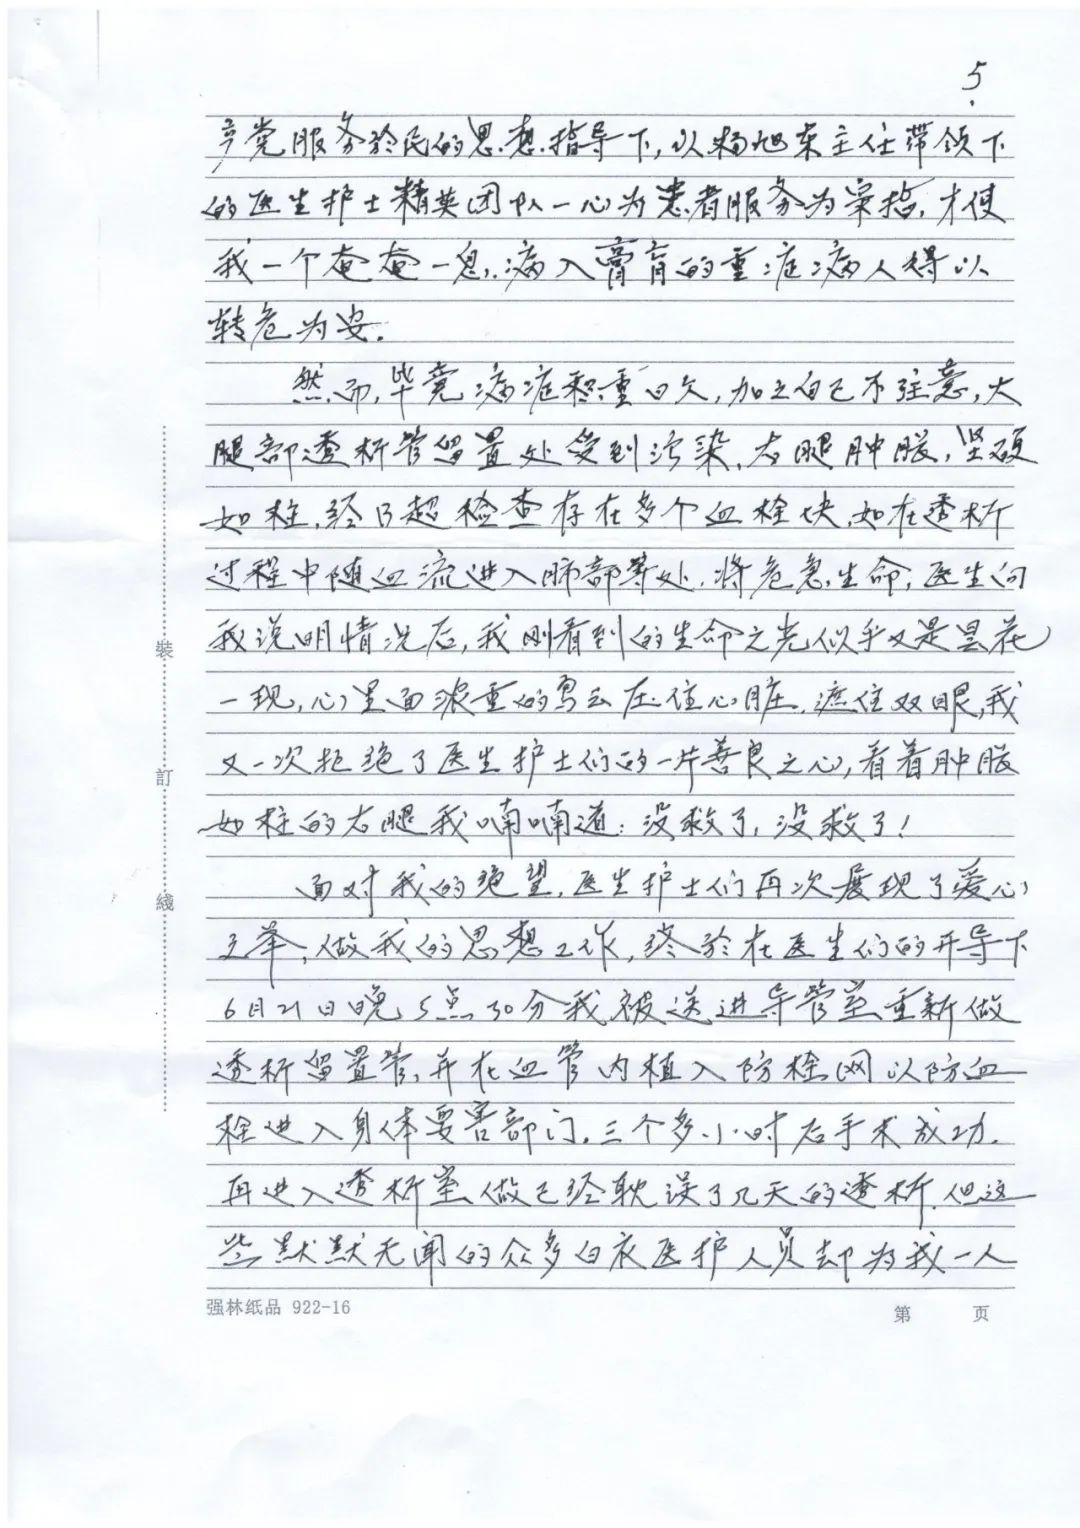 5.
产党服务於民的思想指导下,以杨旭东主任带领下
的医生护士精英团队一心为患者服务为宗指,才使
我一个奄奄一息,病入膏肓的重症病人得以
转危为安.
然而,毕竟病症积重日久,加之自己不注意,大
腿部透析管留置处受到污染,右腿肿胀,坚硬
如柱,经B超检查存在多个血栓块,如在透析
过程中随血流进入肺部等处,将危急生命,医生向
我说明情况后,我刚看到的生命之光似乎又是昙花
一现,心里面浓重的乌云压住心脏,遮住双眼,我
又一次拒绝了医生护士们的一片善良之心,看着肿胀
如柱的右腿我喃喃道:没救了,没救了!
面对我的绝望,医生护士们再次展现了爱心
之举,做我的思想工作,终於在医生们的开导下
6月21日晚5点30分我被送进导管室重新做
透析留置管,并在血管内植入防栓网以防血
栓进入身体要害部门,三个多小时后手术成功.
再进入透析室做已经耽误了几天的透析,但这
些默默无闻的众多白衣医护人员却为我一人
裝
訂
綫
强林纸品 922-16
第 页